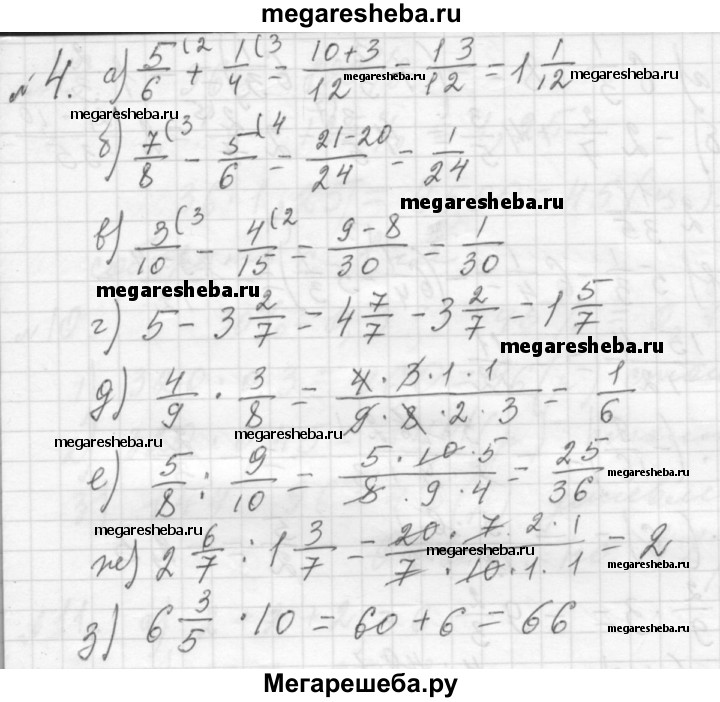 megaresheba.ru
№ 4. а) 5/6 (2 + 1/4 (3 = (10+3)/12 = 13/12 = 1 1/12
megaresheba.ru
megaresheba.ru
megaresheba.ru
б) 7/8 (3 − 5/6 (4 = (21−20)/24 = 1/24
megaresheba.ru
в) 3/10 (3 − 4/15 (2 = (9−8)/30 = 1/30
megaresheba.ru
г) 5 − 3 2/7 = 4 7/7 − 3 2/7 = 1 5/7
megaresheba.ru
д) 4/9 · 3/8 = (4 · 3 · 1 · 1)/(9 · 8 · 2 · 3) = 1/6
megaresheba.ru
megaresheba.ru
е) 5/8 : 9/10 = (5 · 10 · 5)/(8 · 9 · 4) = 25/36
megaresheba.ru
megaresheba.ru
ж) 2 6/7 : 1 3/7 = (20 · 7 · 2 · 1)/(7 · 10 · 1 · 1) = 2
megaresheba.ru
megaresheba.ru
з) 6 3/5 · 10 = 60 + 6 = 66
megaresheba.ru
Мегарешеба.ру